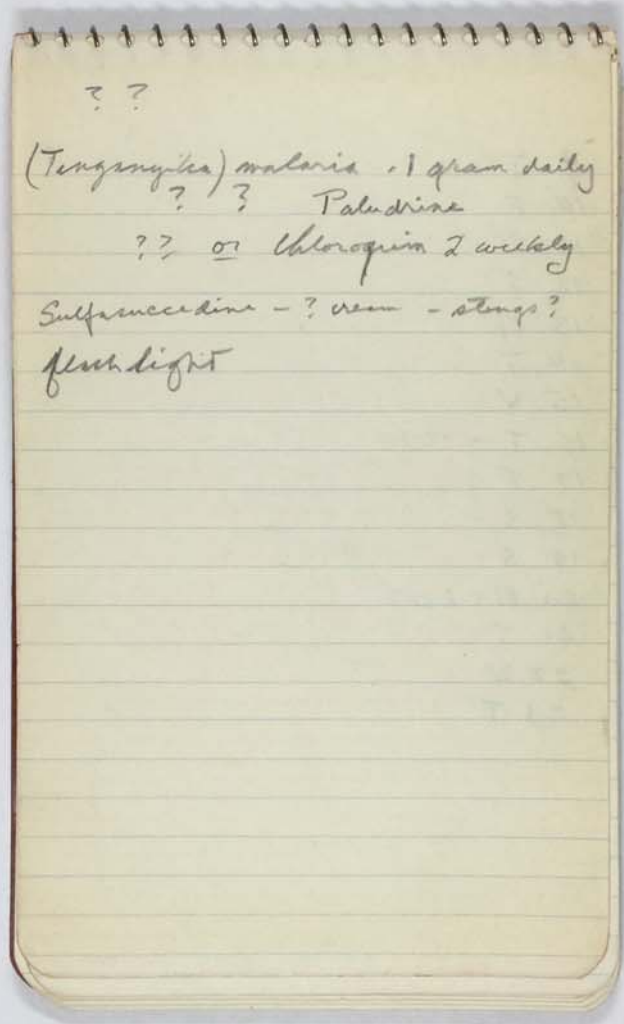 ? ?
(Tanganyika) malaria .1 gram daily
? ? Paludrine
?? or Chloroquin 2 weekly
Sulfasuccedine - ? cream - stings?
flash light